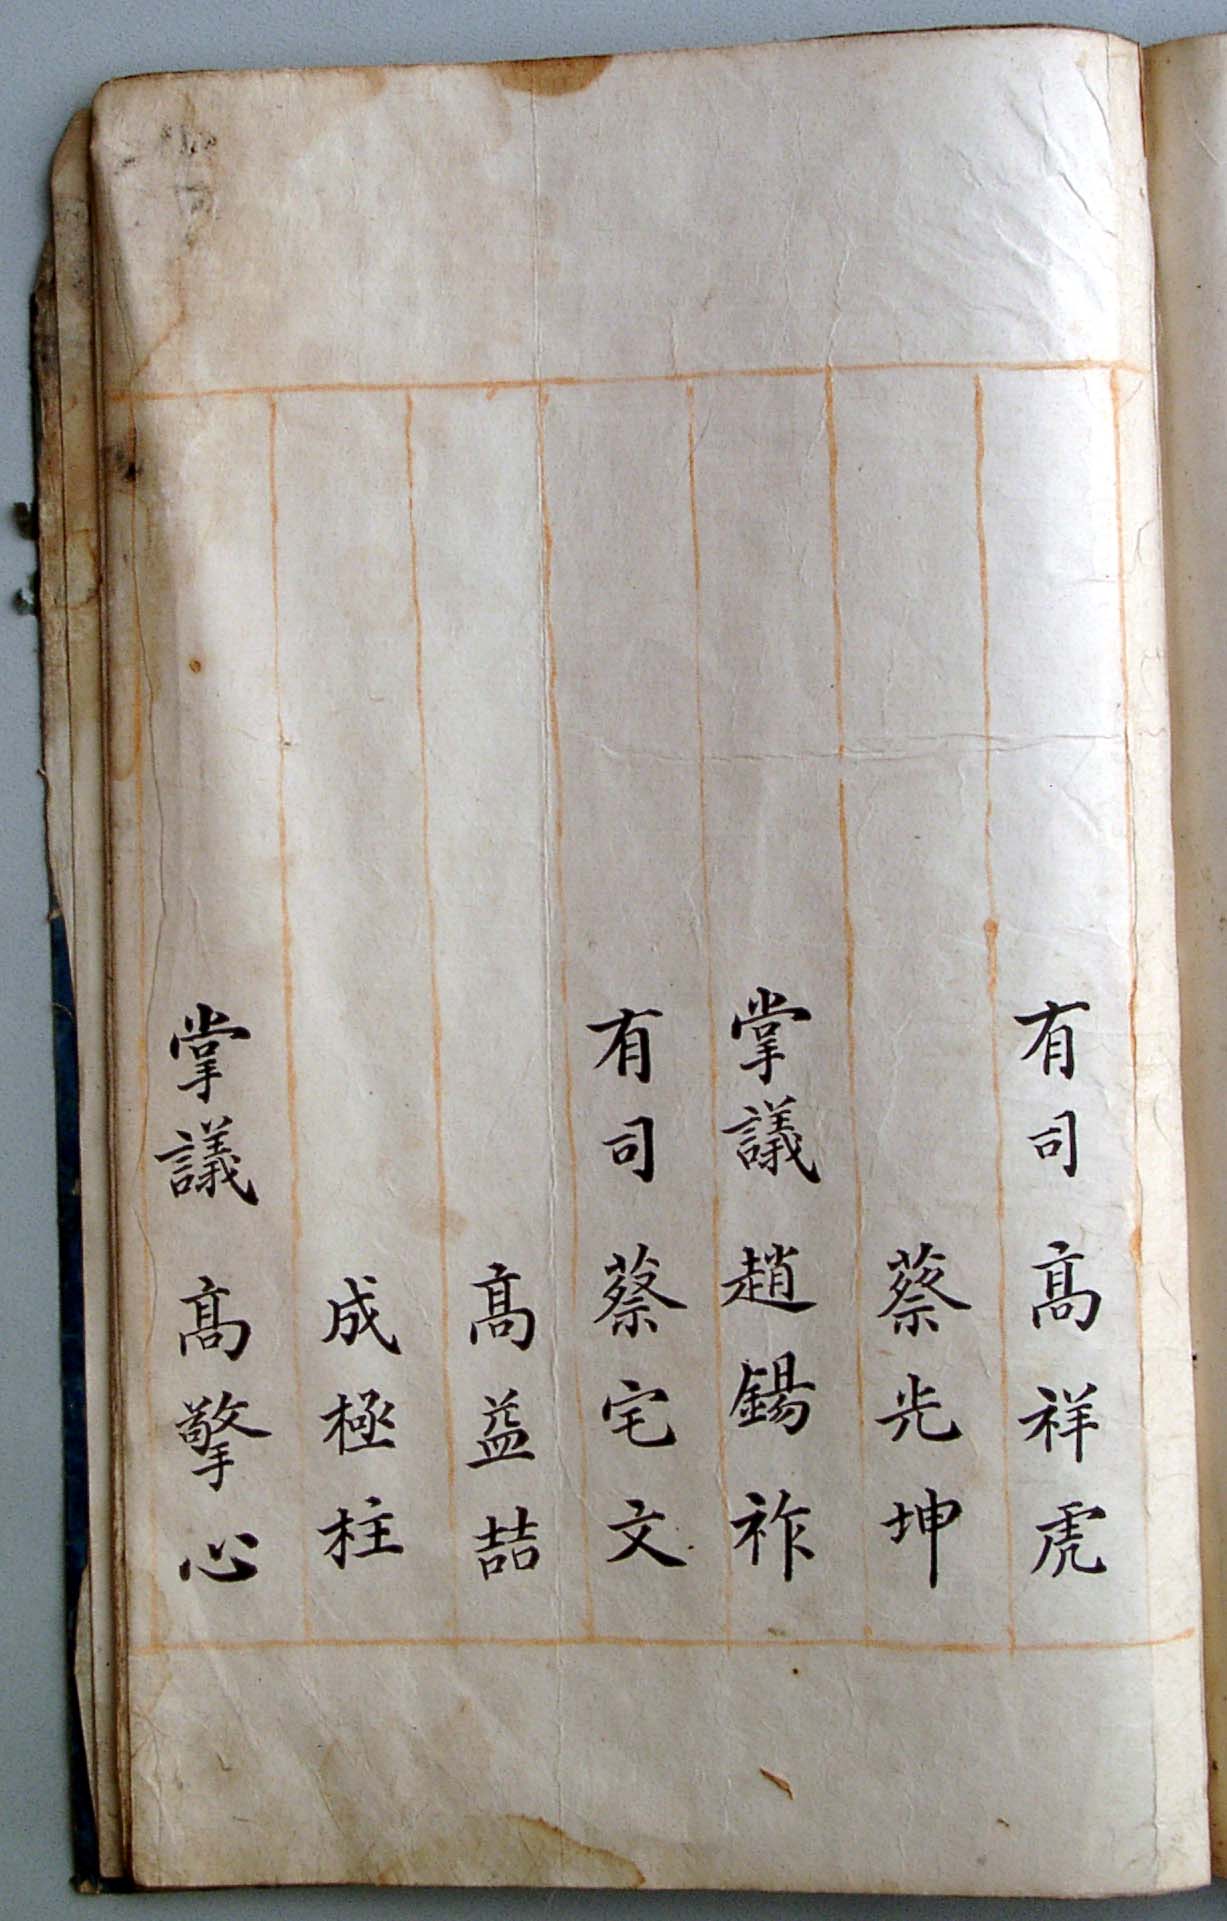 有司 高祥虎
蔡光坤
掌議 趙錫祚
有司 蔡宅文
高益喆
成極柱
掌議 高擎心